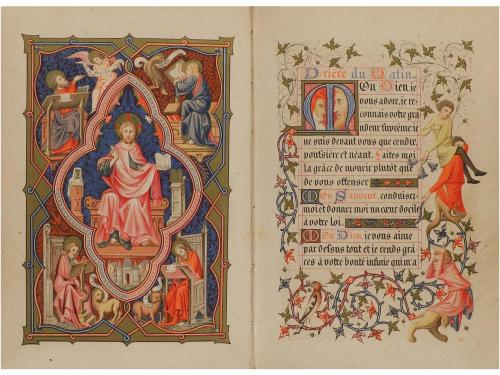 Prière du Matin
Mon Dieu, je
vous adore, je re
connais votre gra
ndeur suprême, je
ne suis devant vous que cendre,
poussière et néant. Faites moi
la grâce de mourir plutôt que
de vous offenser
Mon Sauveur conduisez
moi et donnez moi un cœur docile
à votre loi.
Mon Dieu je vous aime
par dessus tout et je rends
grâces à votre bonté infinie qui m'a